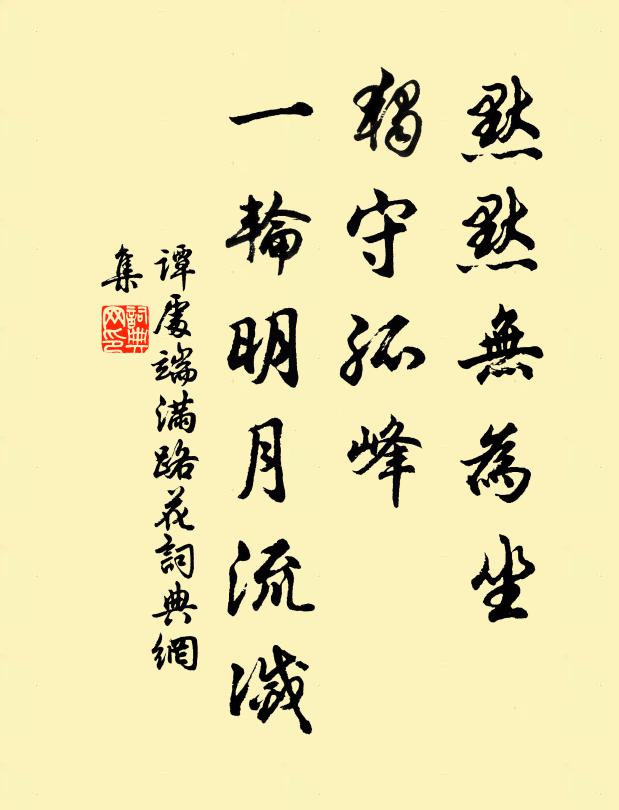 默默無為坐
獨守孤峰
一輪明月流澱
譚處端滿路花詞典網
集
詞典网印